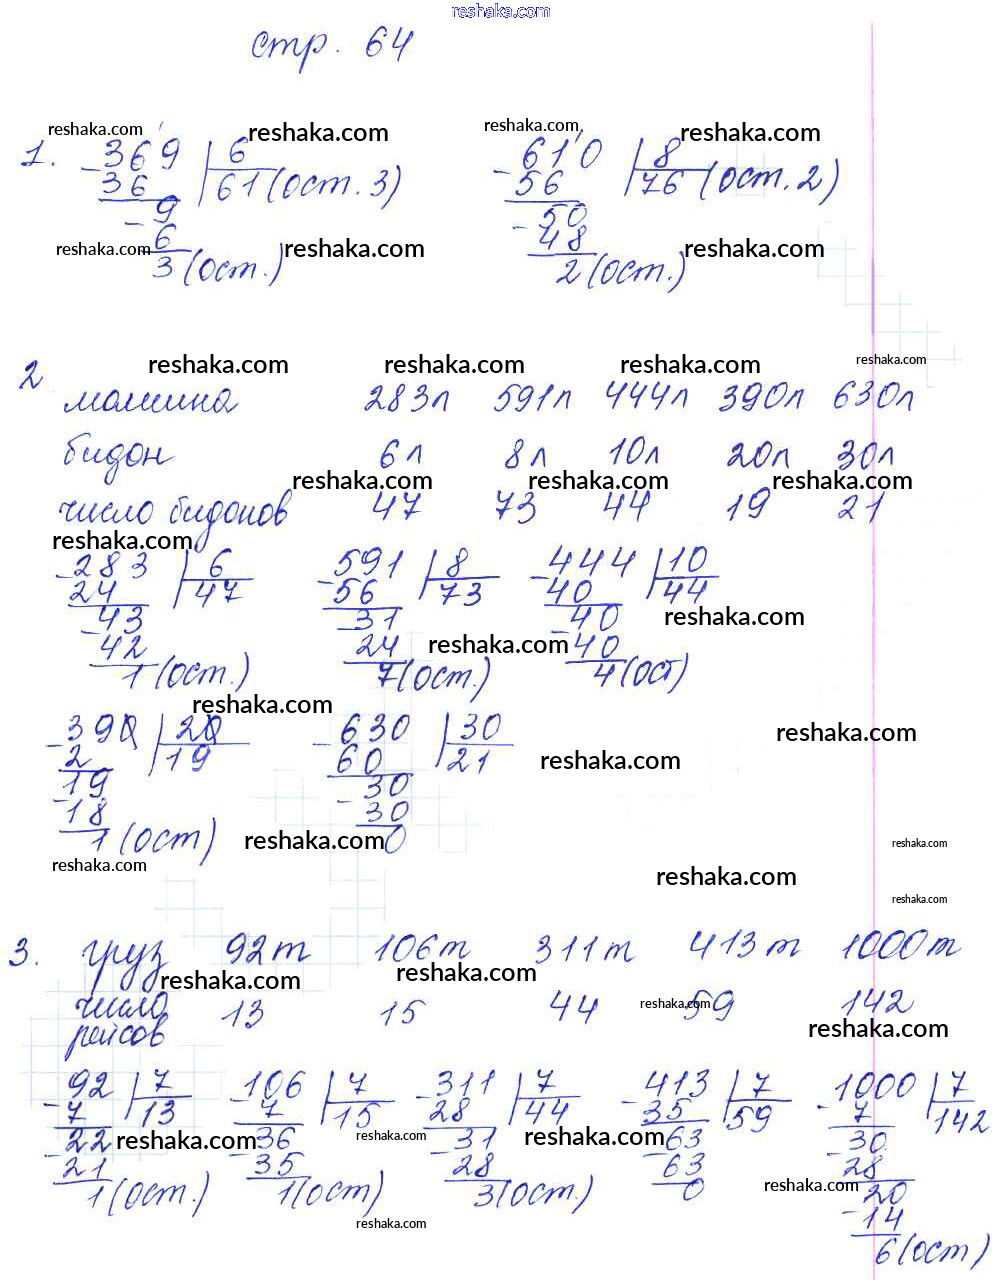 reshaka.com
стр. 64
reshaka.com reshaka.com reshaka.com reshaka.com
1. -369 | 6 -610 | 8
36 61 (ост. 3) 56 76 (ост. 2)
-9 -50
6 48
reshaka.com reshaka.com reshaka.com
3 (ост.) 2 (ост.)
reshaka.com reshaka.com reshaka.com reshaka.com
2 машина 283л 591л 444л 390л 630л
бидон 6л 8л 10л 20л 30л
reshaka.com reshaka.com reshaka.com
число бидонов 47 73 44 19 21
reshaka.com
-283 | 6 -591 | 8 -444 | 10
24 47 56 73 40 44
reshaka.com
-43 -31 -40
reshaka.com
42 24 40
1 (ост.) 7 (ост.) 4 (ост)
reshaka.com
-390 | 20 -630 | 30
reshaka.com
2 19 60 21
reshaka.com
-19 -30
18 30
1 (ост) 0
reshaka.com reshaka.com
reshaka.com reshaka.com
reshaka.com
3. груз 92т 106т 311т 413т 1000т
reshaka.com reshaka.com
число 13 15 44 59 142
reshaka.com
рейсов
reshaka.com
-92 | 7 -106 | 7 -311 | 7 -413 | 7 -1000 | 7
7 13 7 15 28 44 35 59 7 142
-22 -36 -31 -63 -30
reshaka.com reshaka.com reshaka.com
21 35 28 63 28
reshaka.com
1 (ост.) 1 (ост) 3 (ост.) 0 -20
14
reshaka.com
6 (ост)